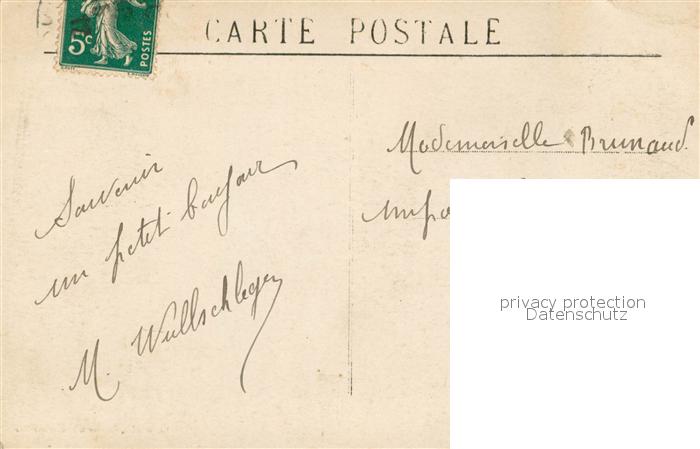 5c
POSTES
CARTE POSTALE
Souvenir
un petit bonjour
M. Wullschleger
Mademoiselle Brunaud
privacy protection
Datenschutz